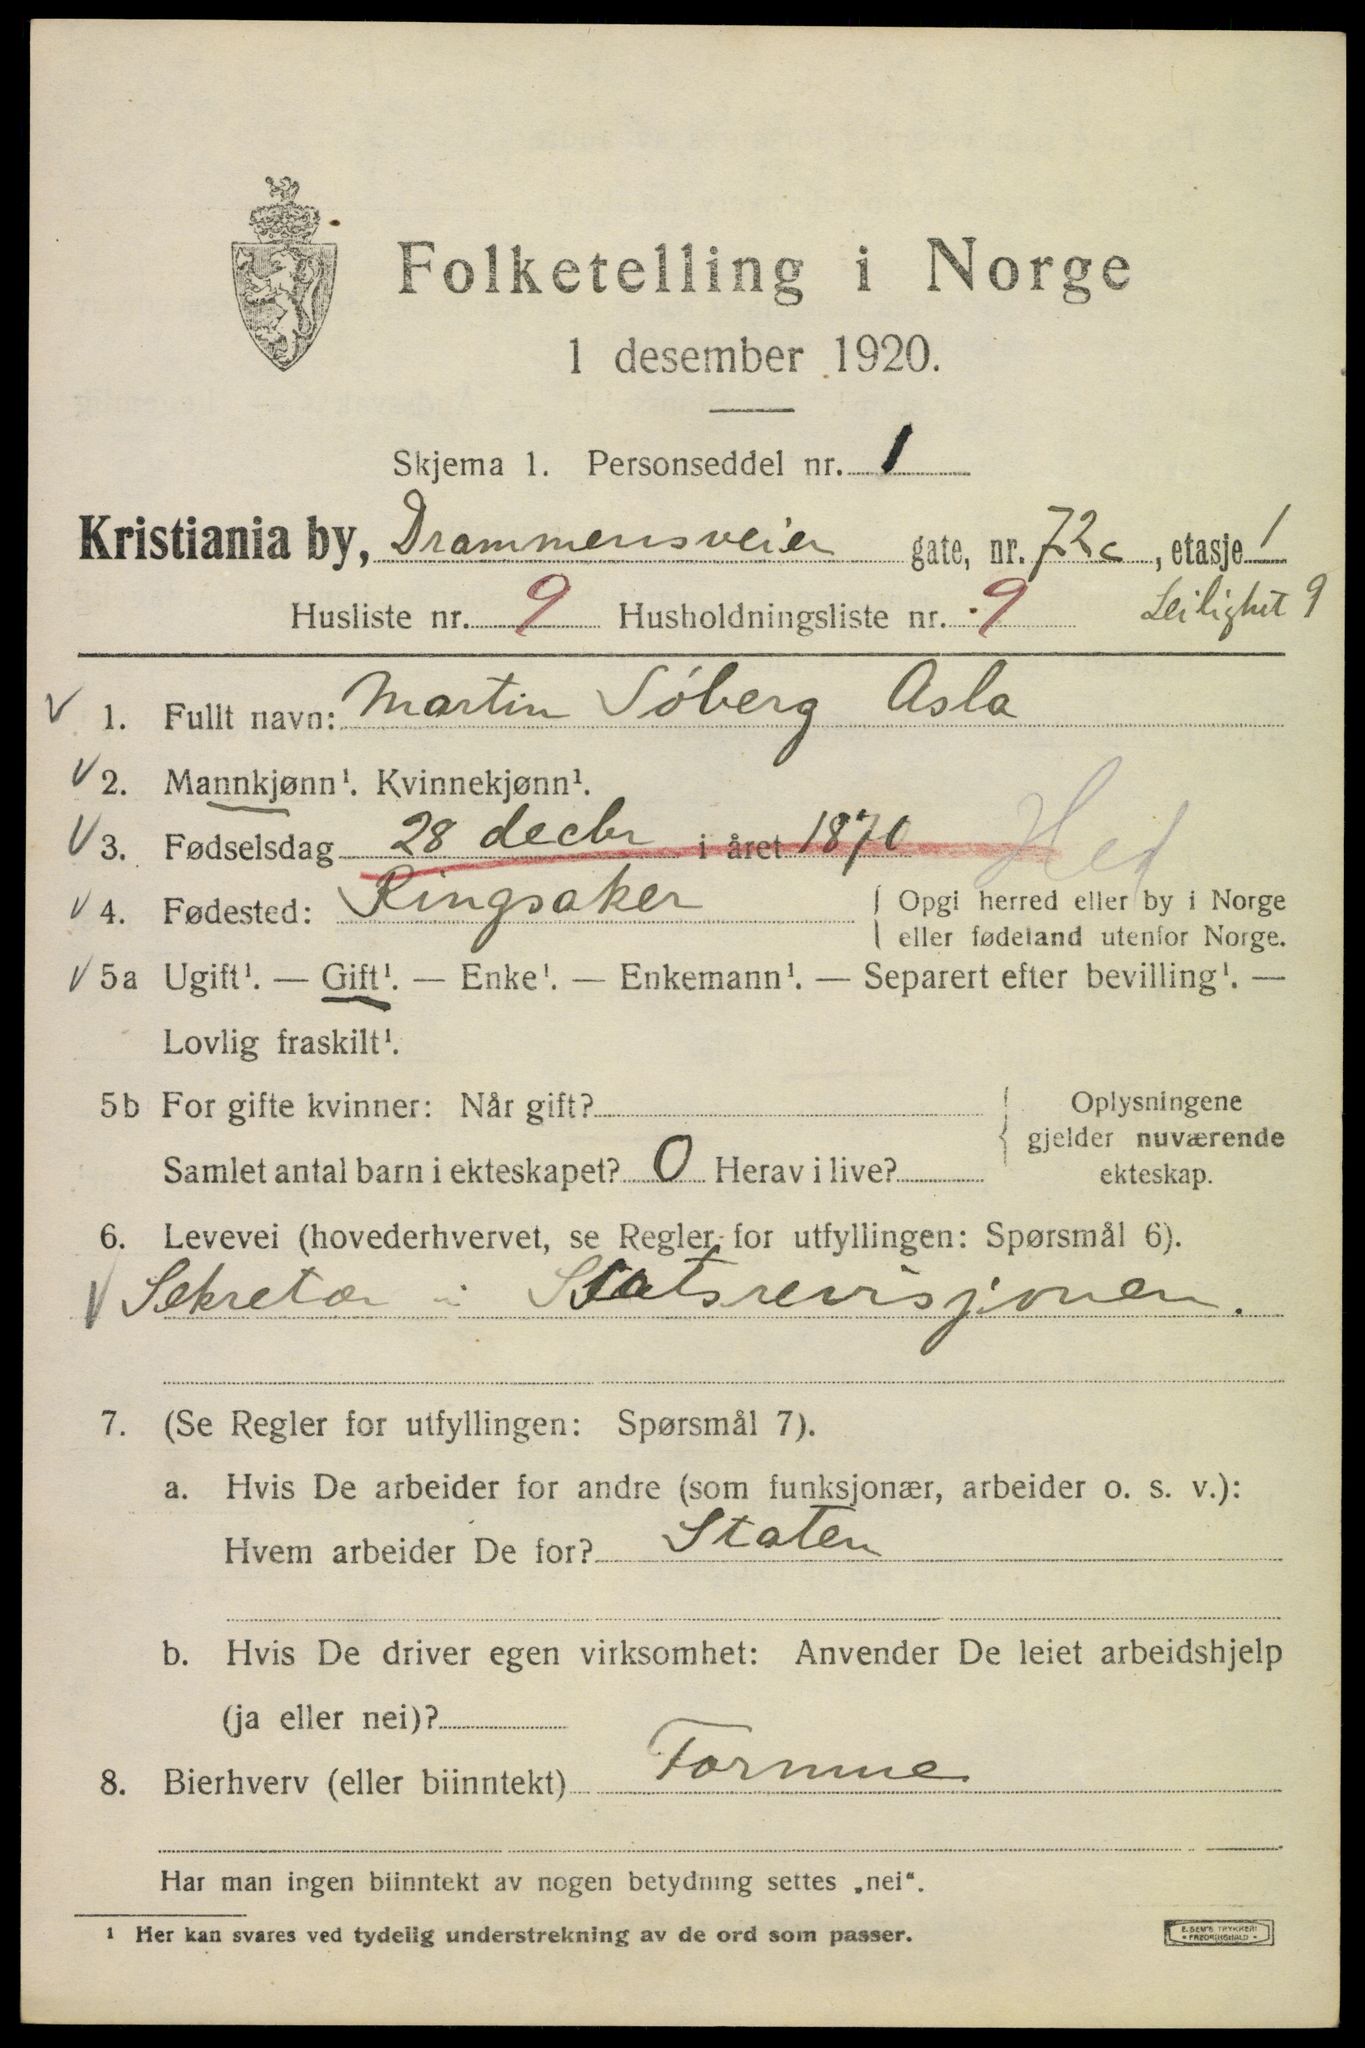 Folketelling i Norge
1 desember 1920.
Skjema 1. Personseddel nr. 1
Kristiania by, Drammensveien gate, nr. 72c, etasje 1
Husliste nr. 9 Husholdningsliste nr. 9 Leilighet 9
1. Fullt navn: Martin Söberg Asla
2. Mannkjønn¹. Kvinnekjønn¹.
3. Fødselsdag 28 decbr i året 1870 Hed
4. Fødested: Ringsaker { Opgi herred eller by i Norge
eller fødeland utenfor Norge.
5a Ugift¹. — Gift¹. — Enke¹. — Enkemann¹. — Separert efter bevilling¹. —
Lovlig fraskilt¹.
5b For gifte kvinner: Når gift? { Oplysningene
gjelder nuværende
Samlet antal barn i ekteskapet? 0 Herav i live? ekteskap.
6. Levevei (hovederhvervet, se Regler for utfyllingen: Spørsmål 6).
Sekretær i Statsrevisjonen.
7. (Se Regler for utfyllingen: Spørsmål 7).
a. Hvis De arbeider for andre (som funksjonær, arbeider o. s. v.):
Hvem arbeider De for? Staten
b. Hvis De driver egen virksomhet: Anvender De leiet arbeidshjelp
(ja eller nei)?
8. Bierhverv (eller biinntekt) Formue
Har man ingen biinntekt av nogen betydning settes „nei“.
¹ Her kan svares ved tydelig understrekning av de ord som passer.
E. SEM'S TRYKKERI
FREDRIKSHALD